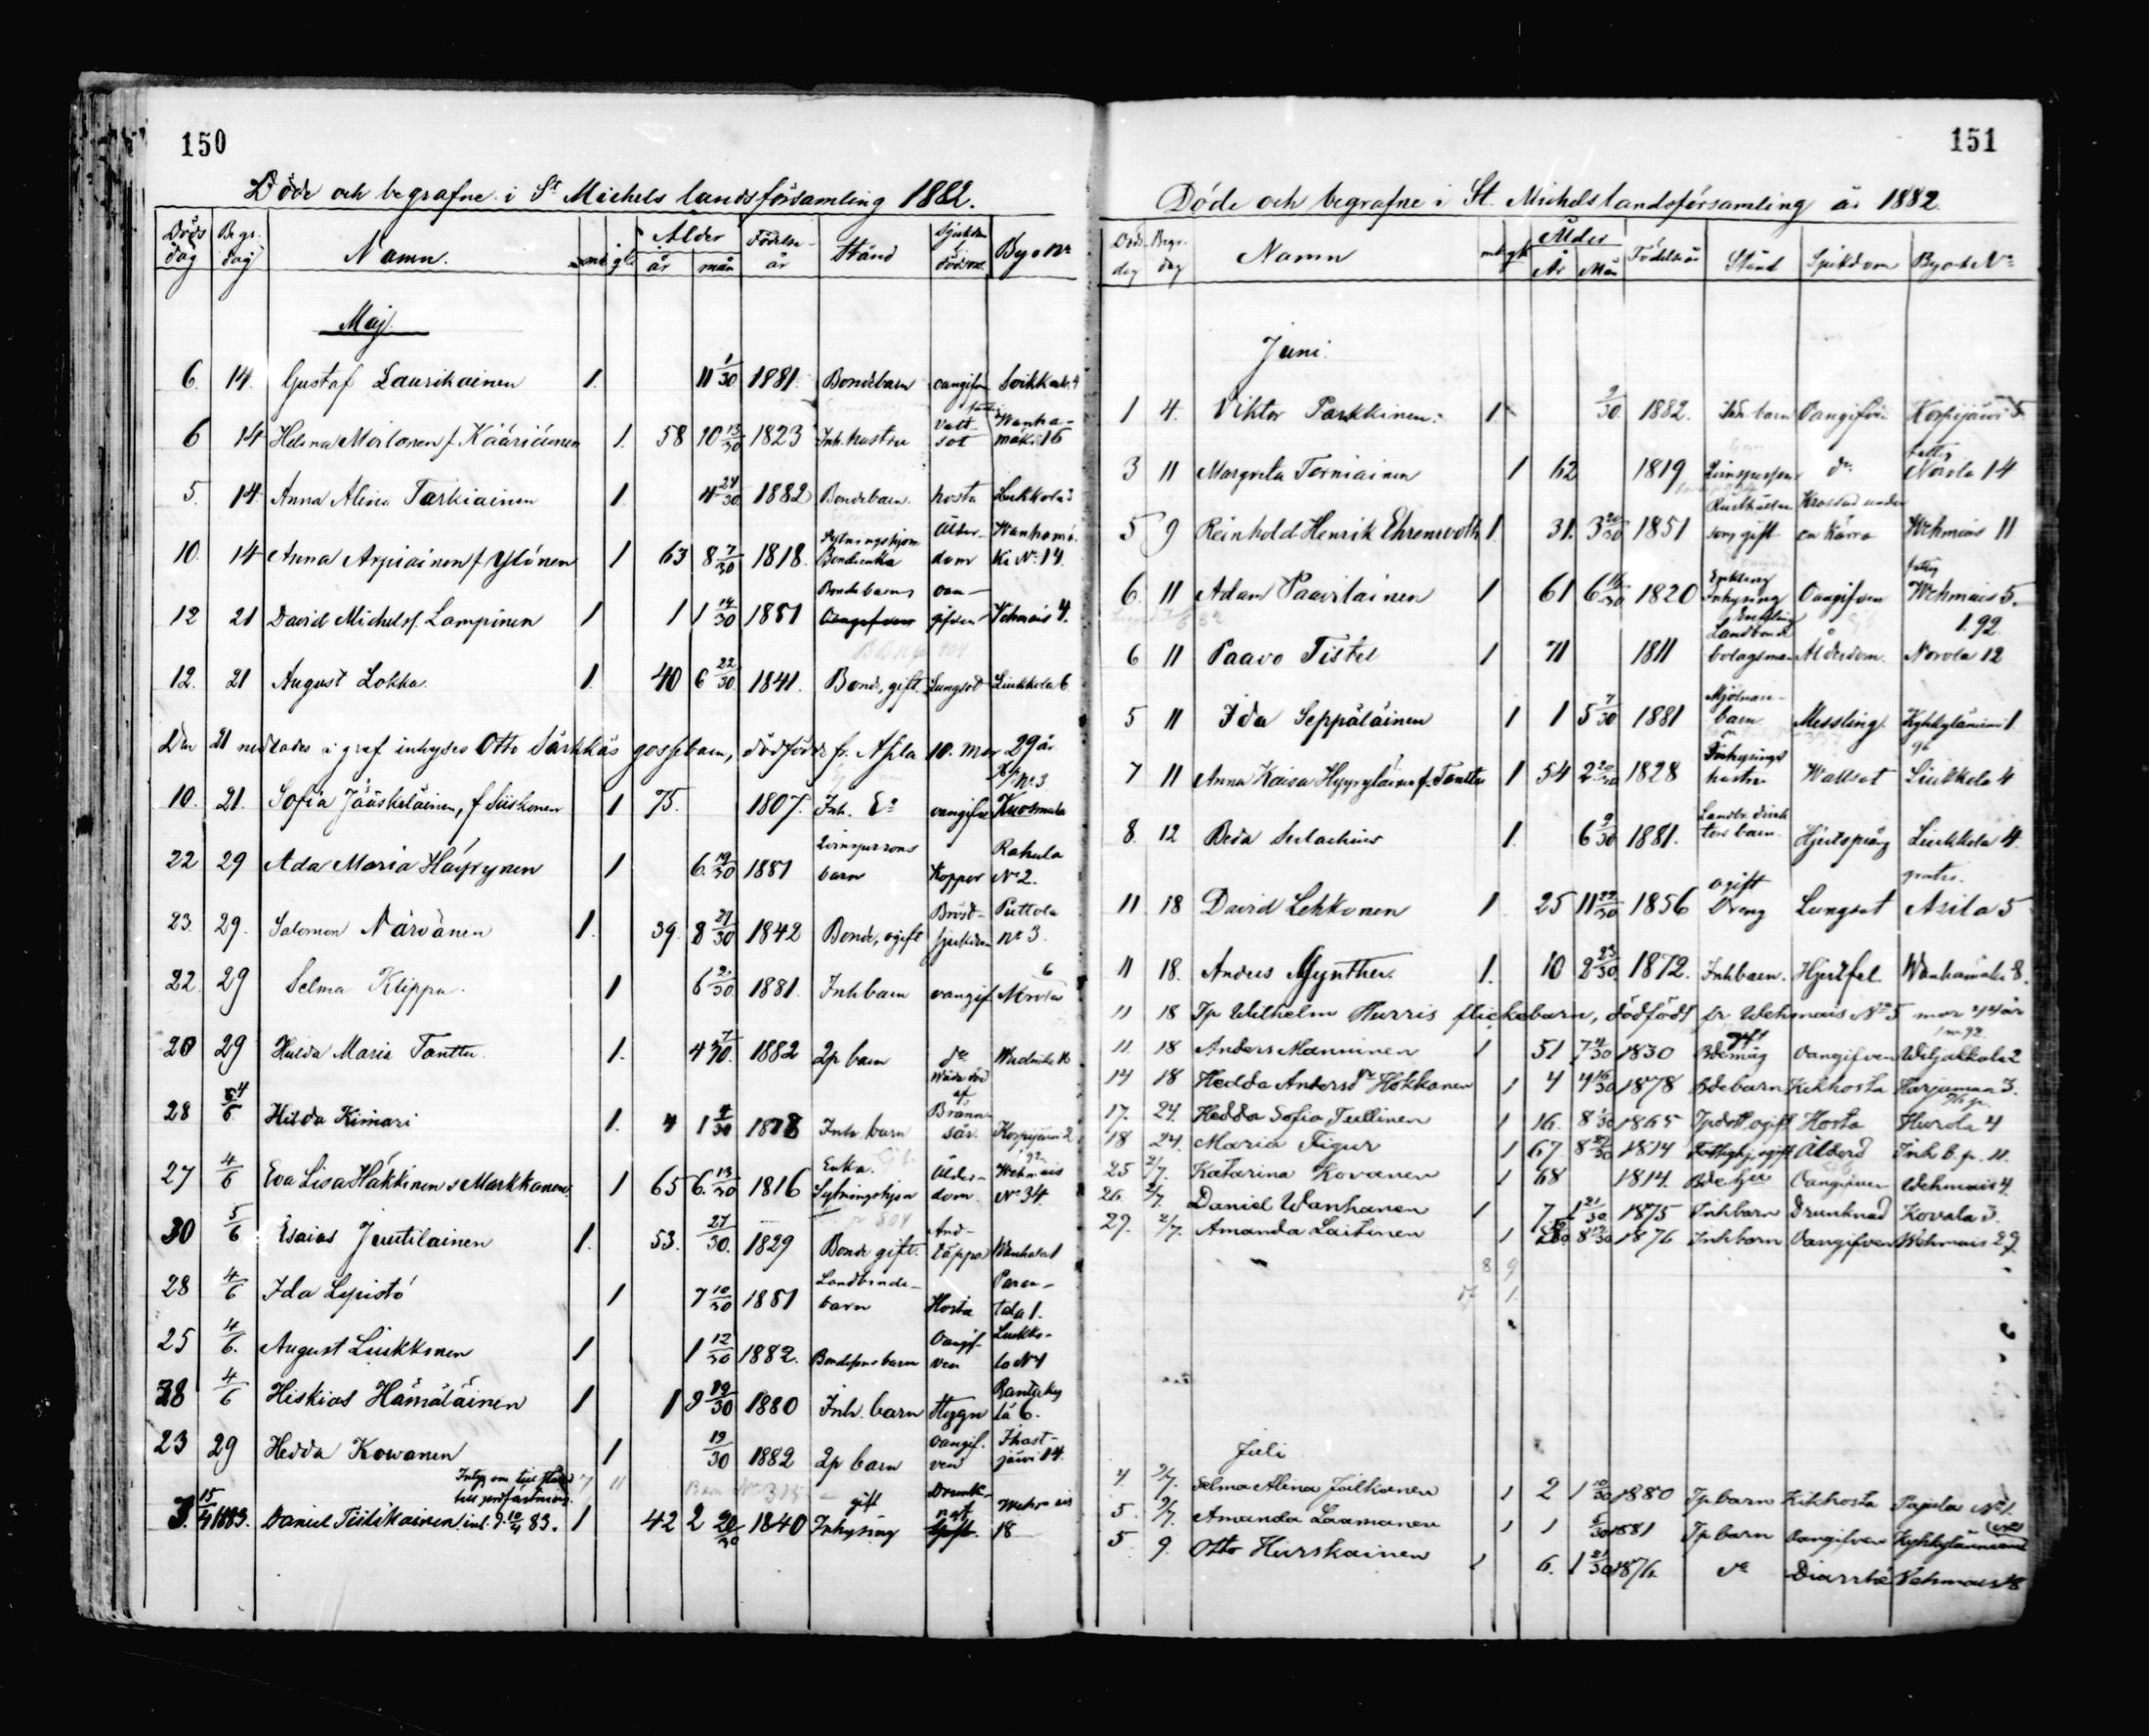 150
Döde och begrafne i St Michels landsförsamling 1882.
Döds dag Begr. dag Namn. mk gk Ålder år mån Födelse-år Stånd Sjukdom Byo No
Maj.
6. 14. Gustaf Laurikainen 1. 11 1/30 1881. Bondebarn oangifven Soikkala 4
6 14 Helena Moilanen f. Kääriäinen 1. 58 10 13/30 1823 Inh. hustru Vatt-sot Wanha-mäki 16
5. 14. Anna Alina Tarkiainen 1. 4 24/30 1882 Bondebarn. hosta Liukkola 3
10. 14 Anna Arpiainen f Ylönen 1 63 8 7/30 1818. Sytningshjon Bondeenka Ålder-dom Wanhamä-ki No 14.
12 21 David Michelsf. Lampinen 1 1 1 14/30 1881 Bondebarns oan-gifven Vehmais 4.
12. 21 August Lokka. 1. 40 6 22/30 1841. Bonde, gift Lungsot Liukkola 6
Den 21 nedsades i graf inhyses Otto Särkkäs gossebarn, dödfödt fr. Asila 10. mor 29 år
10. 21. Sofia Jääskeläinen, f Siiskonen 1 75. 1807. Inh. Ea oangifven No. 3 Kuosmala
22 29 Ada Maria Häyrynen 1 6. 19/30 1881 barn Koppor Rahula No 2.
23. 29. Salomon Närvänen 1. 39. 8 21/30 1842 Bonde, ogift Bröst-sjukdom Pittola no 3.
22. 29 Selma Klippa. 1 6 2/30 1881. Inhbarn oangif. Norola 6
20 29 Hulda Maria Tanttu. 1. 4 7/30. 1882 2p barn do
28 4/6 Hilda Kimari 1. 4 1 4/30 1878 Inh. barn Wåda död af Bränn-sår. Korpijärvi 2
27 4/6 Eva Lisa Häkkinen s Markkanen. 1 65 6. 13/30 1816 Enka. Sytningshjon Ålder-dom. Wehmais No 34.
30 5/6 Esaias Juutilainen 1. 53. 27/30. 1829 Bonde gift. And-täppa Wanhala 1
28 4/6 Ida Lepistö 1 7 10/30 1881 Landbonde-barn Hosta Paren-tala 1.
25 4/6. August Liukkonen 1 1 12/30 1882. Bondesons barn Oangif-ven Liukko-la No 1
28 4/6 Hiskias Hämäläinen 1 1 9 19/30 1880 Inh. barn Stygn Rantaky-lä 6.
23 29 Hedda Kowanen 1 19/30 1882 2p barn oangif. ven Ihast-järvi 14.
3. 15/4 1883. Daniel Tiilikainen. 1 42 2 20/30 1840 gift Inhysing Drunk-nat Wehmais 18
151
Döde och begrafne i St. Michels landsförsamling år 1882.
Döds dag Begr. dag Namn mk gk Ålder År Mån Födelseår Stånd Sjukdom Byo o No
Juni.
1 4. Viktor Parkkinen. 1 9/30 1882. Inh. barn Oangifven Korpijärvi 5.
3 11 Margreta Torniainen 1 62 1819 do Norola 14
5 9 Reinhold Henrik Ehrenroth 1 31. 3 20/30 1851 Rusthållare son gift Krossad under en kärra Wehmais 11
6. 11 Adam Paavilainen 1 61 6 16/30 1820 Enkling Inhysing Oangifven Wehmais 5.
6 11 Paavo Tistel 1 71 1811 Enkling Landbonde bolagsman Ålderdom. Norola 12
5 11 Ida Seppäläinen 1 1 5 7/30 1881 Mjölnare-barn Messling. Kyhkyläniemi 1
7 11 Anna Kaisa Hyyryläinen f. Tanttu 1 54 2 20/30 1828 Inhysings hustru Wattsot Liukkola 4
8. 12 Beda Selachius 1. 6 9/30 1881. Landtbr. direk-tors barn. Hjertspräng Liukkola 4.
11 18 David Lehkonen 1 25 11 22/30 1856 ogift Dreng Lungsot gratis. Asila 5
11 18. Anders Gynther. 1. 10 2 23/30. 1872. Inhbarn. Hjertfel. Wanhamäki 8.
11 18 Tp Wilhelm Hurris flickebarn, dödfödt fr Wehmais No 5 mor 44 år
11. 18 Anders Manninen 1 51 7 1830 gift Bdemåg Oangifven Wiljakkala 2
14 18 Hedda Andersdr Hokkanen 1 4 4 16/30 1878 Bdebarn Kikhosta Harjumaa 3.
17. 24. Hedda Sofia Tullinen 1 16. 8 1/30 1865 Tpdott. ogift Hosta Hurola 4
18 24. Maria Figur 1 67. 8 1814 Fattighj. ogift Ålderd Inh b. fr. 11.
25 2/7. Katarina Kovanen 1 68 1814. Oangifven Wehmais 4.
26. 2/7. Daniel Wanhanen 1 7 1 21/30 1875 Inhbarn Drunknad Kovala 3.
29. 2/7. Amanda Laitinen 1 8 1876 Inhbarn Oangifven Wehmais 29.
Juli
4. 9/7. Selma Alina Jalkanen 1 2 1 10/30 1880 Tp barn Kikhosta Pajula No 1.
5. 9/7. Amanda Laamanen 1 1 5/30 1881 Tp barn Oangifven Kyhkyläniemi
5. 9. Otto Hirskainen 1 6. 1 21/30 1876. do Diarrhé Vehmais 18